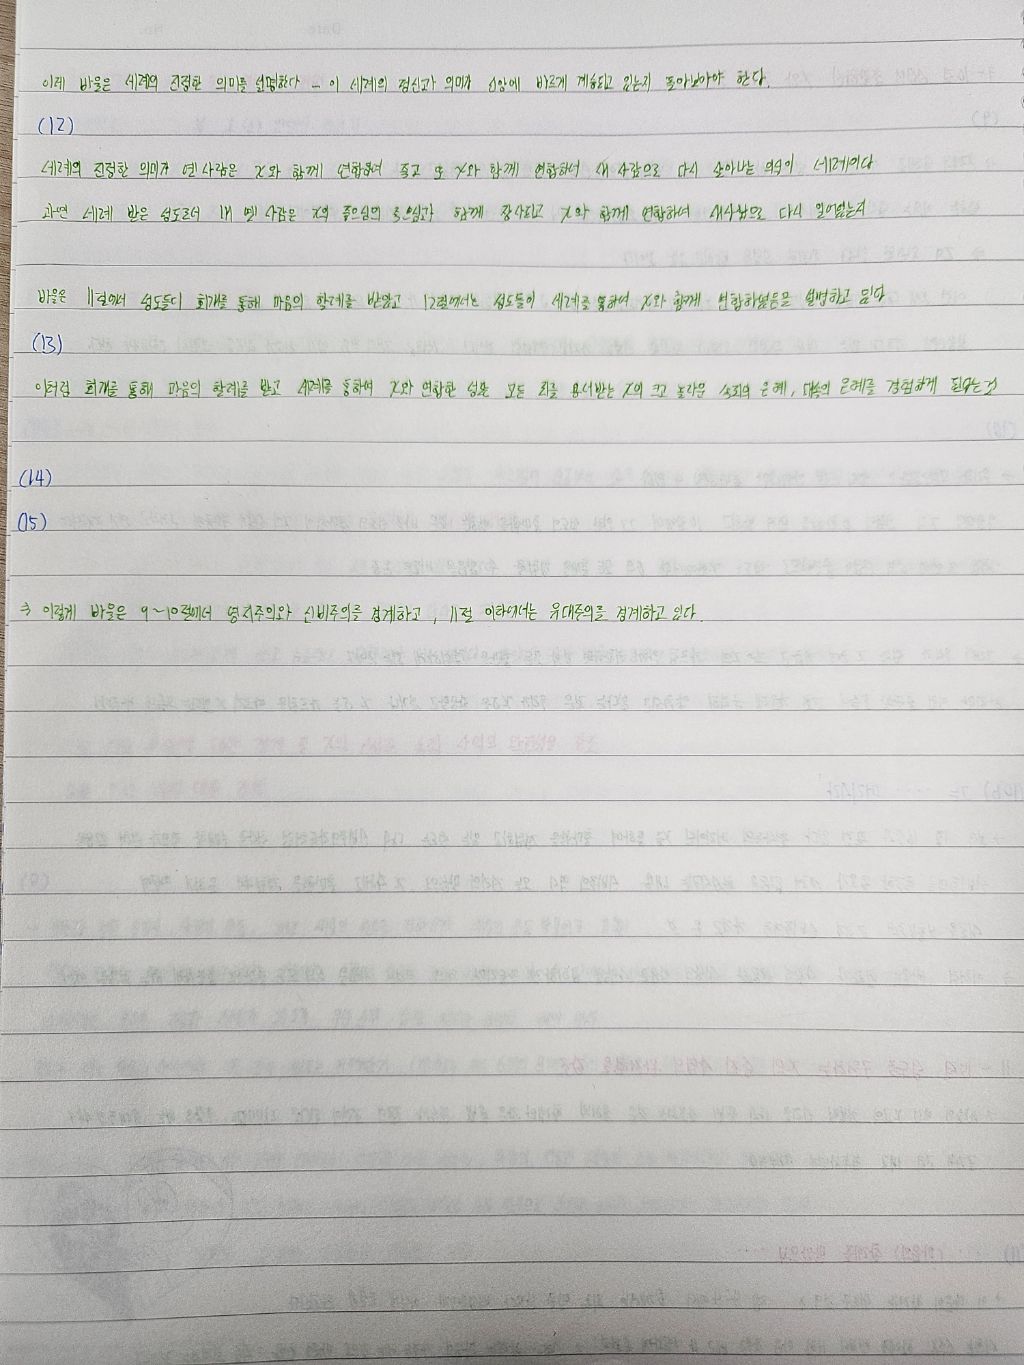 이제 바울은 세례의 진정한 의미를 설명한다 - 이 세례의 정신과 의미가 신앙에 바르게 계승되고 있는지 돌아보아야 한다.
(12)
세례의 진정한 의미가 옛사람은 X와 함께 연합하여 죽고 또 X와 함께 연합하여 새 사람으로 다시 살아나는 의식이 세례이다
과연 세례 받은 성도로서 내 옛 사람은 X의 죽으심의 죽으심과 함께 장사되고 X와 함께 연합하여 새사람으로 다시 일어났는지
바울은 11절에서 성도들이 회개를 통해 마음의 할례를 받았고 12절에서는 성도들이 세례를 통하여 X와 함께 연합하였음을 설명하고 있다
(13)
이처럼 회개를 통해 마음의 할례를 받고 세례를 통하여 X와 연합한 성도는 모든 죄를 용서받는 X의 크고 놀라운 속죄의 은혜, 대속의 은혜를 경험하게 된다는 것
(14)
(15)
⇒ 이렇게 바울은 9~10절에서 영지주의와 신비주의를 경계하고, 11절 이하에서는 유대주의를 경계하고 있다.